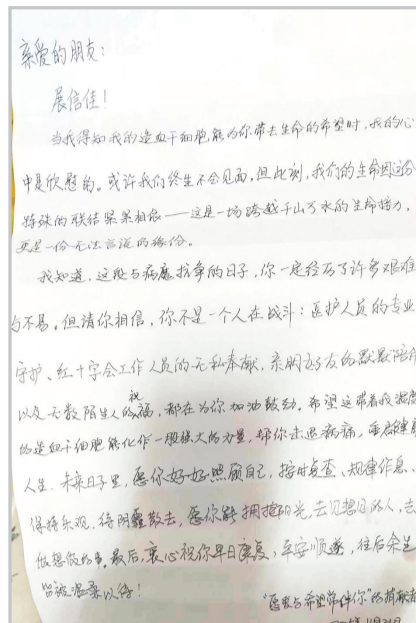 亲爱的朋友：
展信佳！
当我得知我的造血干细胞能为你带去生命的希望时，我的心
中是欣慰的。或许我们终生不会见面，但此刻，我们的生命因这份
特殊的联结紧紧相依——这是一场跨越千山万水的生命接力，
更是一份无法言说的缘份。
我知道，这段与病魔抗争的日子，你一定经历了许多艰难
与不易。但请你相信，你不是一个人在战斗：医护人员的专业
守护、红十字会工作人员的无私奉献、亲朋好友的默默陪伴
以及无数陌生人的祝福，都在为你加油鼓劲。希望这带着我温度
的造血干细胞能化作一股强大的力量，帮你走出病痛，重启健康
人生。未来日子里，愿你好好照顾自己，按时复查、规律作息、
保持乐观，待阴霾散去，愿你能拥抱阳光，去见想见的人，去
做想做的事。最后，衷心祝你早日康复，平安顺遂，往后余生
皆被温柔以待！
“愿爱与希望常伴你”的捐献者
年11月